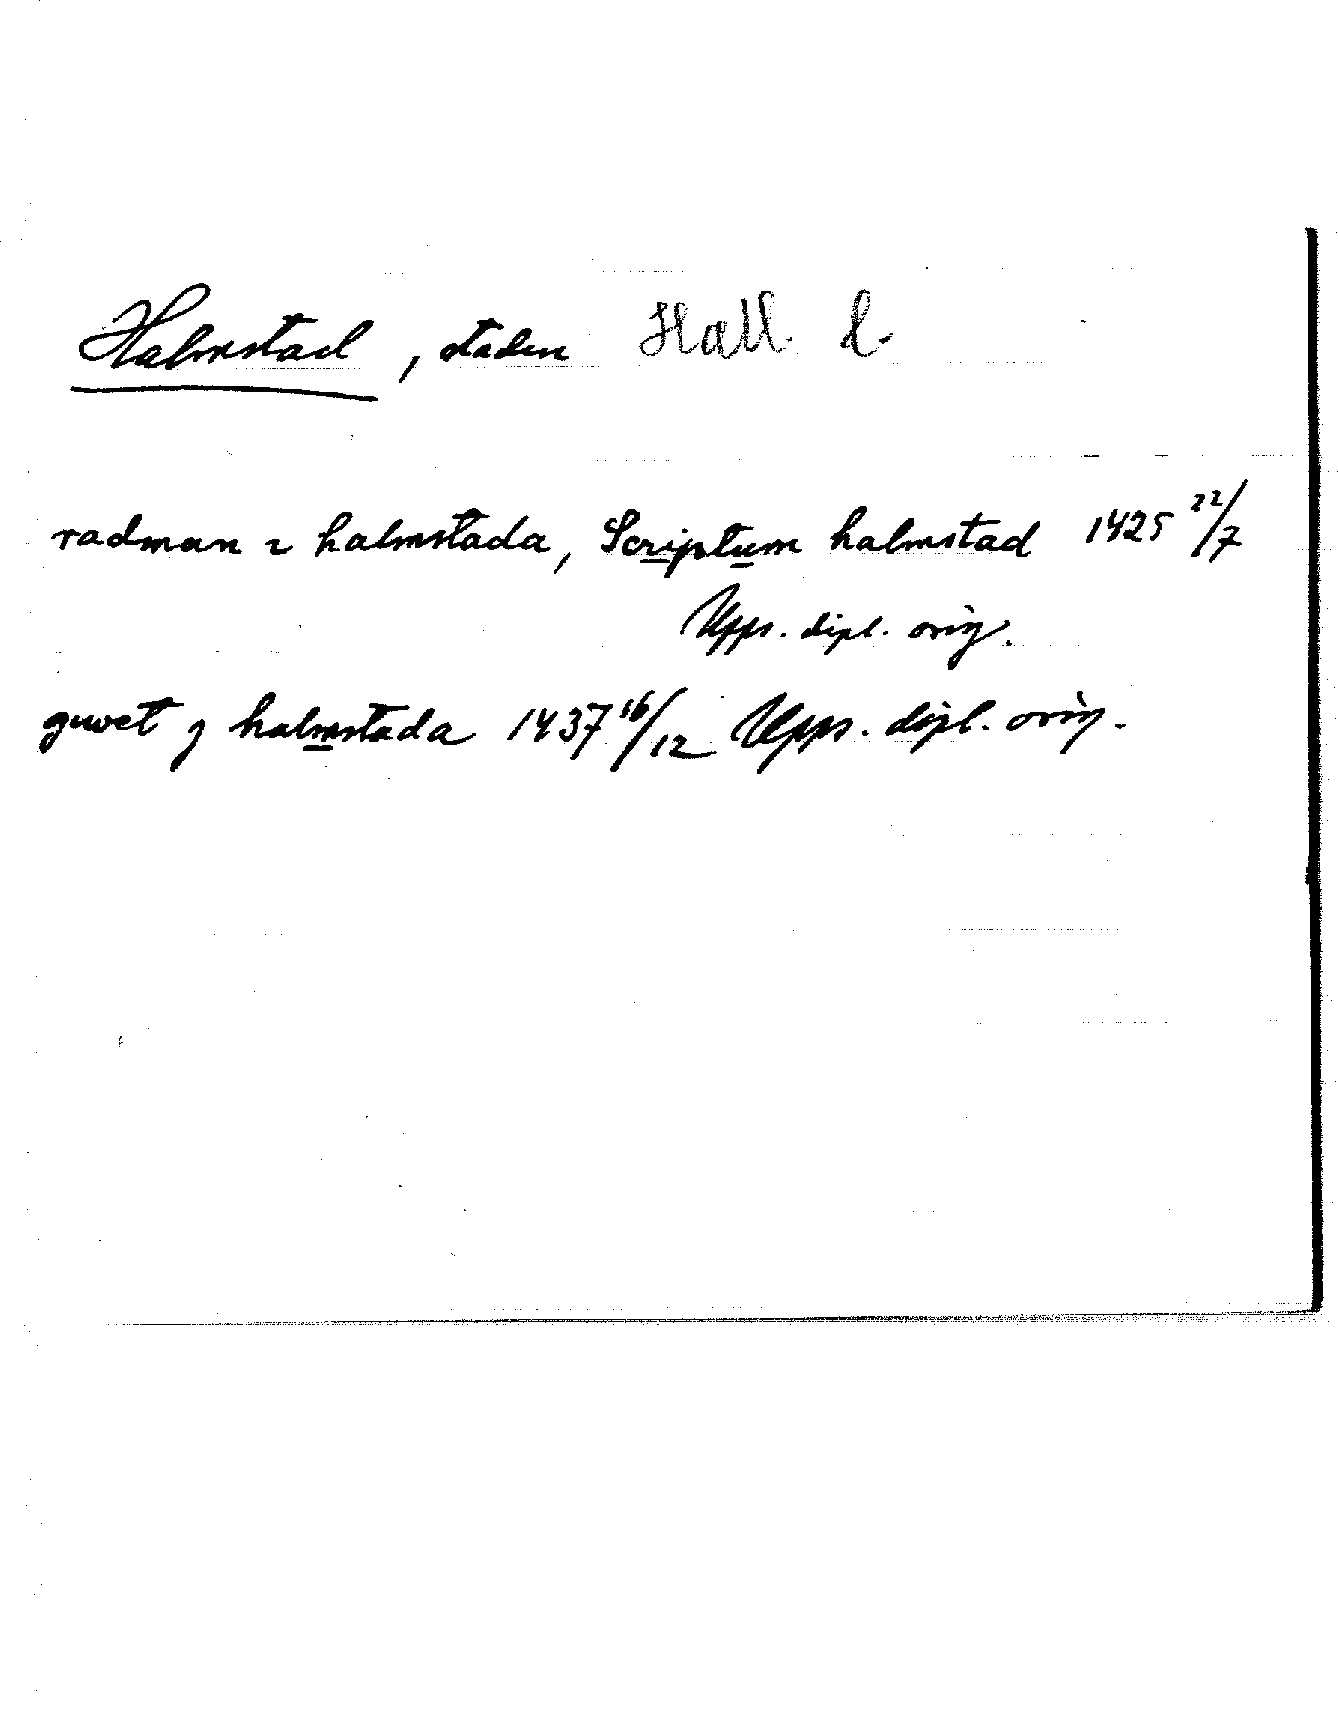 Halmstad, staden Hall. l.
radman i halmstada, Scriptum halmstad 1425 22/7
Upps. dipl. orig.
guvet j halmstada 1437 16/12 Upps. dipl. orig.